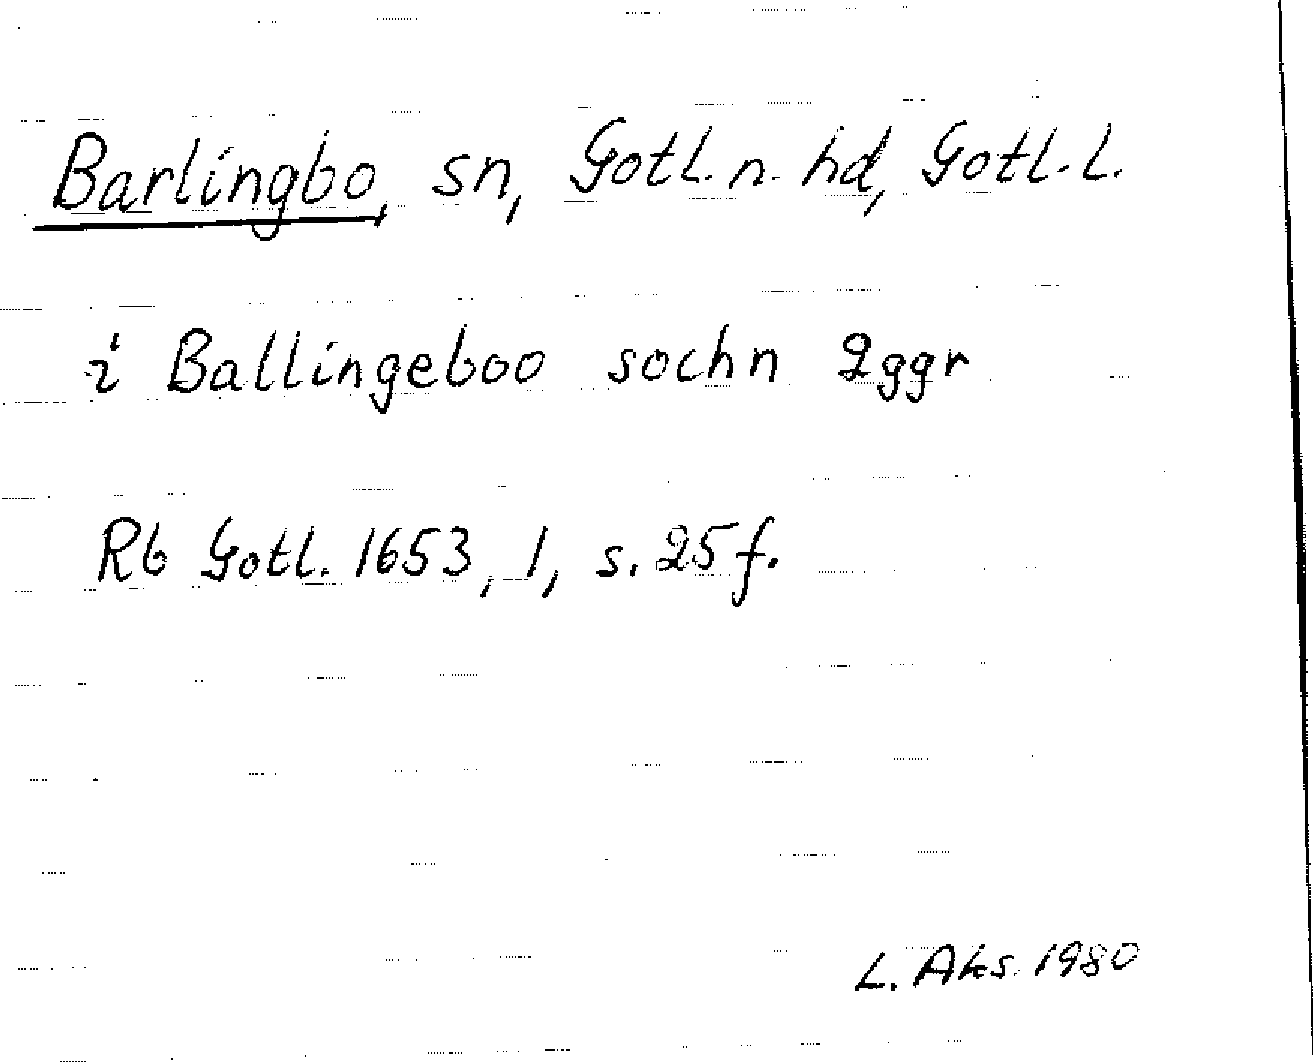 Barlingbo, sn, Gotl. n. hd, Gotl. l.
i Ballingeboo sochn 2ggr
Rb Gotl. 1653, 1, s. 25 f.
L. Aks. 1980